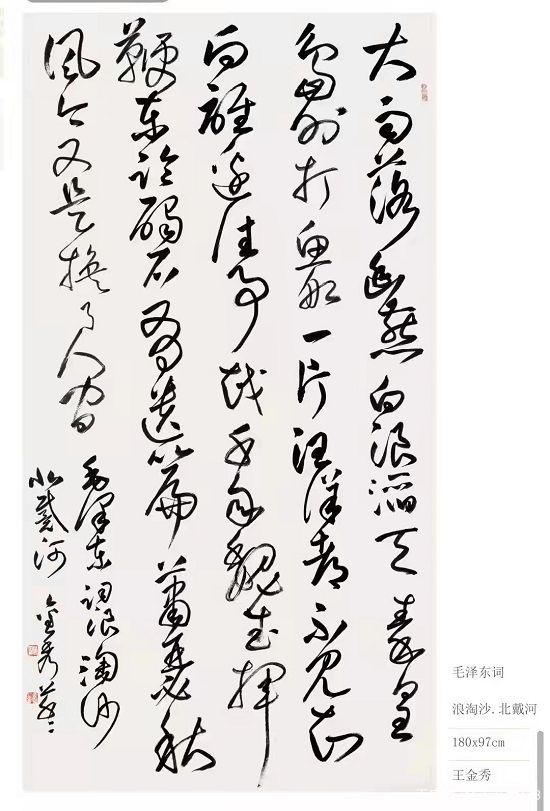 大雨落幽燕白浪滔天秦皇
岛外打鱼船一片汪洋都不见知
向谁边往事越千年魏武挥
鞭东临碣石有遗篇萧瑟秋
风今又是换了人间
毛泽东词浪淘沙
北戴河 金秀
毛泽东词
浪淘沙.北戴河
180x97cm
王金秀